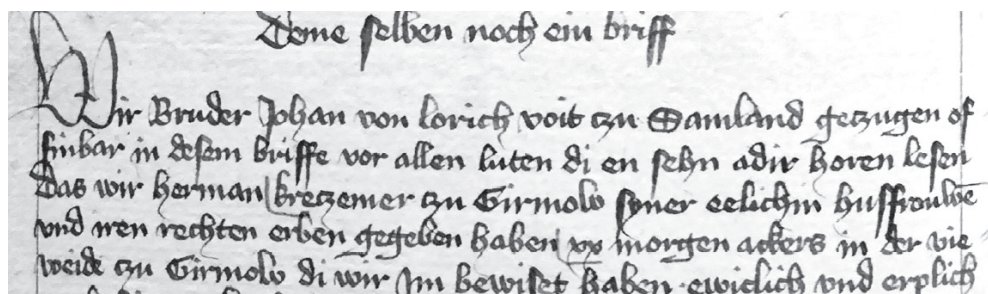 Deme selben noch ein briff
Wir Bruder Johan von lorich voit czu Samland geczugen of
finbar in desem briffe vor allen luten di en sehn adir horen lesen
Das wir herman kreczemer czu Girmow syner eelichin husfrouwē
vnd iren rechten erben gegeben haben xx morgen ackers in der vie
weide czu Girmow di wir Im bewiset haben ewiclich vnd erplich